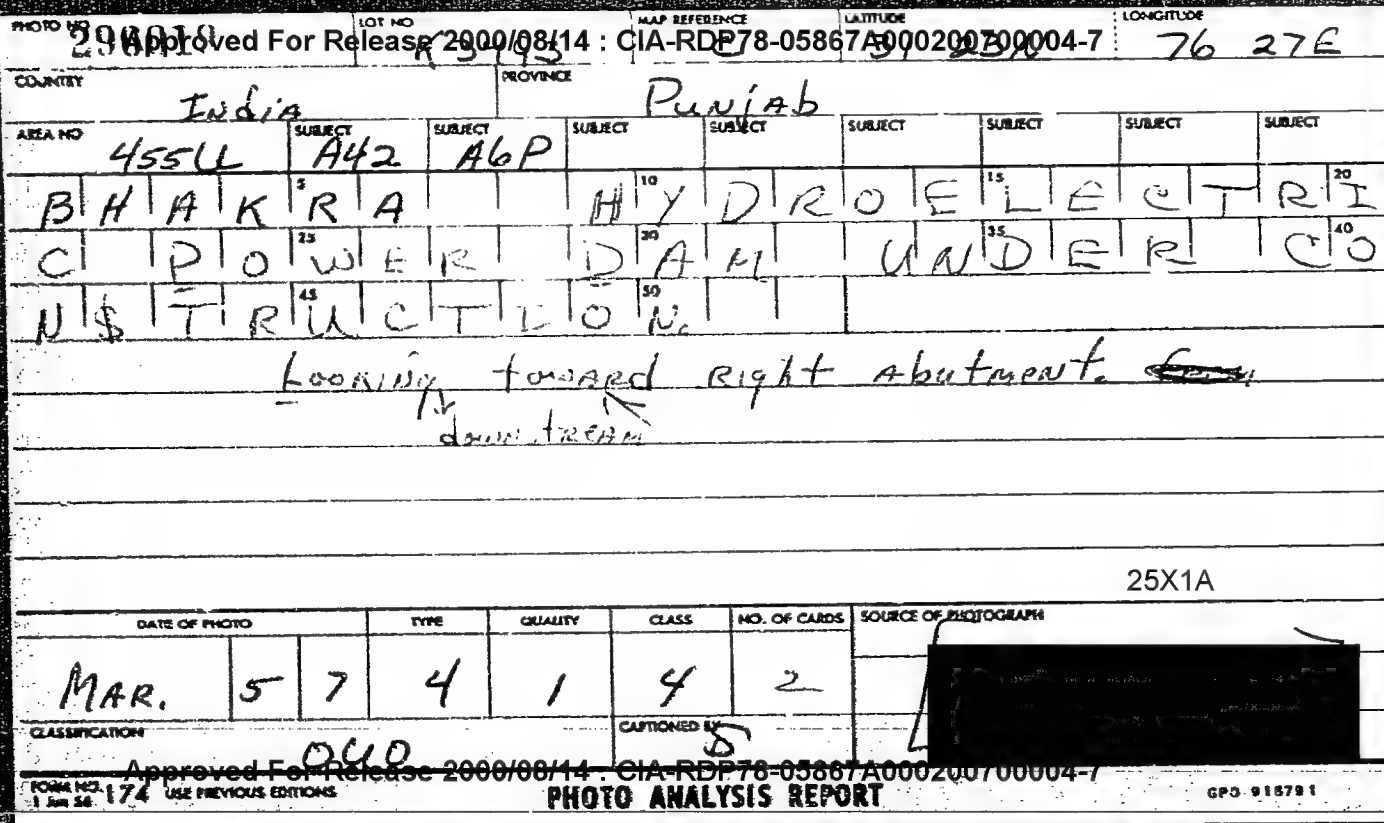 PHOTO NO LOT NO MAP REFERENCE LATITUDE LONGITUDE
Approved For Release 2000/08/14 : CIA-RDP78-05867A000200700004-7 76 27E
COUNTRY India PROVINCE Punjab
AREA NO SUBJECT SUBJECT SUBJECT SUBJECT SUBJECT SUBJECT SUBJECT SUBJECT
455UL A42 A6P
5 10 15 20
BHAKRA HYDROELECTRI
25 30 35 40
C POWER DAM UNDER CO
45 50
N$TRUCTION.
Looking toward Right Abutment.
downstream
25X1A
DATE OF PHOTO TYPE QUALITY CLASS NO. OF CARDS SOURCE OF PHOTOGRAPH
MAR. 5 7 4 1 4 2
CLASSIFICATION OUO CAPTIONED BY
Approved For Release 2000/08/14 : CIA-RDP78-05867A000200700004-7
FORM NO. 174 USE PREVIOUS EDITIONS PHOTO ANALYSIS REPORT GPO 915791
1 Jun 56